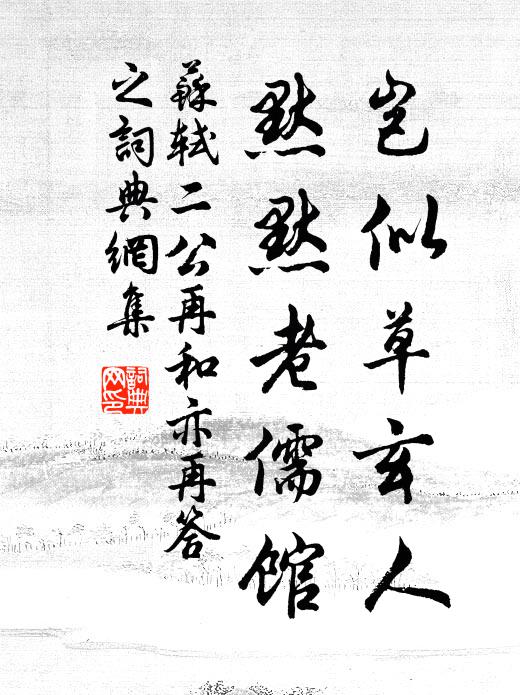 豈似草玄人
默默老儒館
蘇軾二公再和亦再答
之詞典網集
詞典
网印